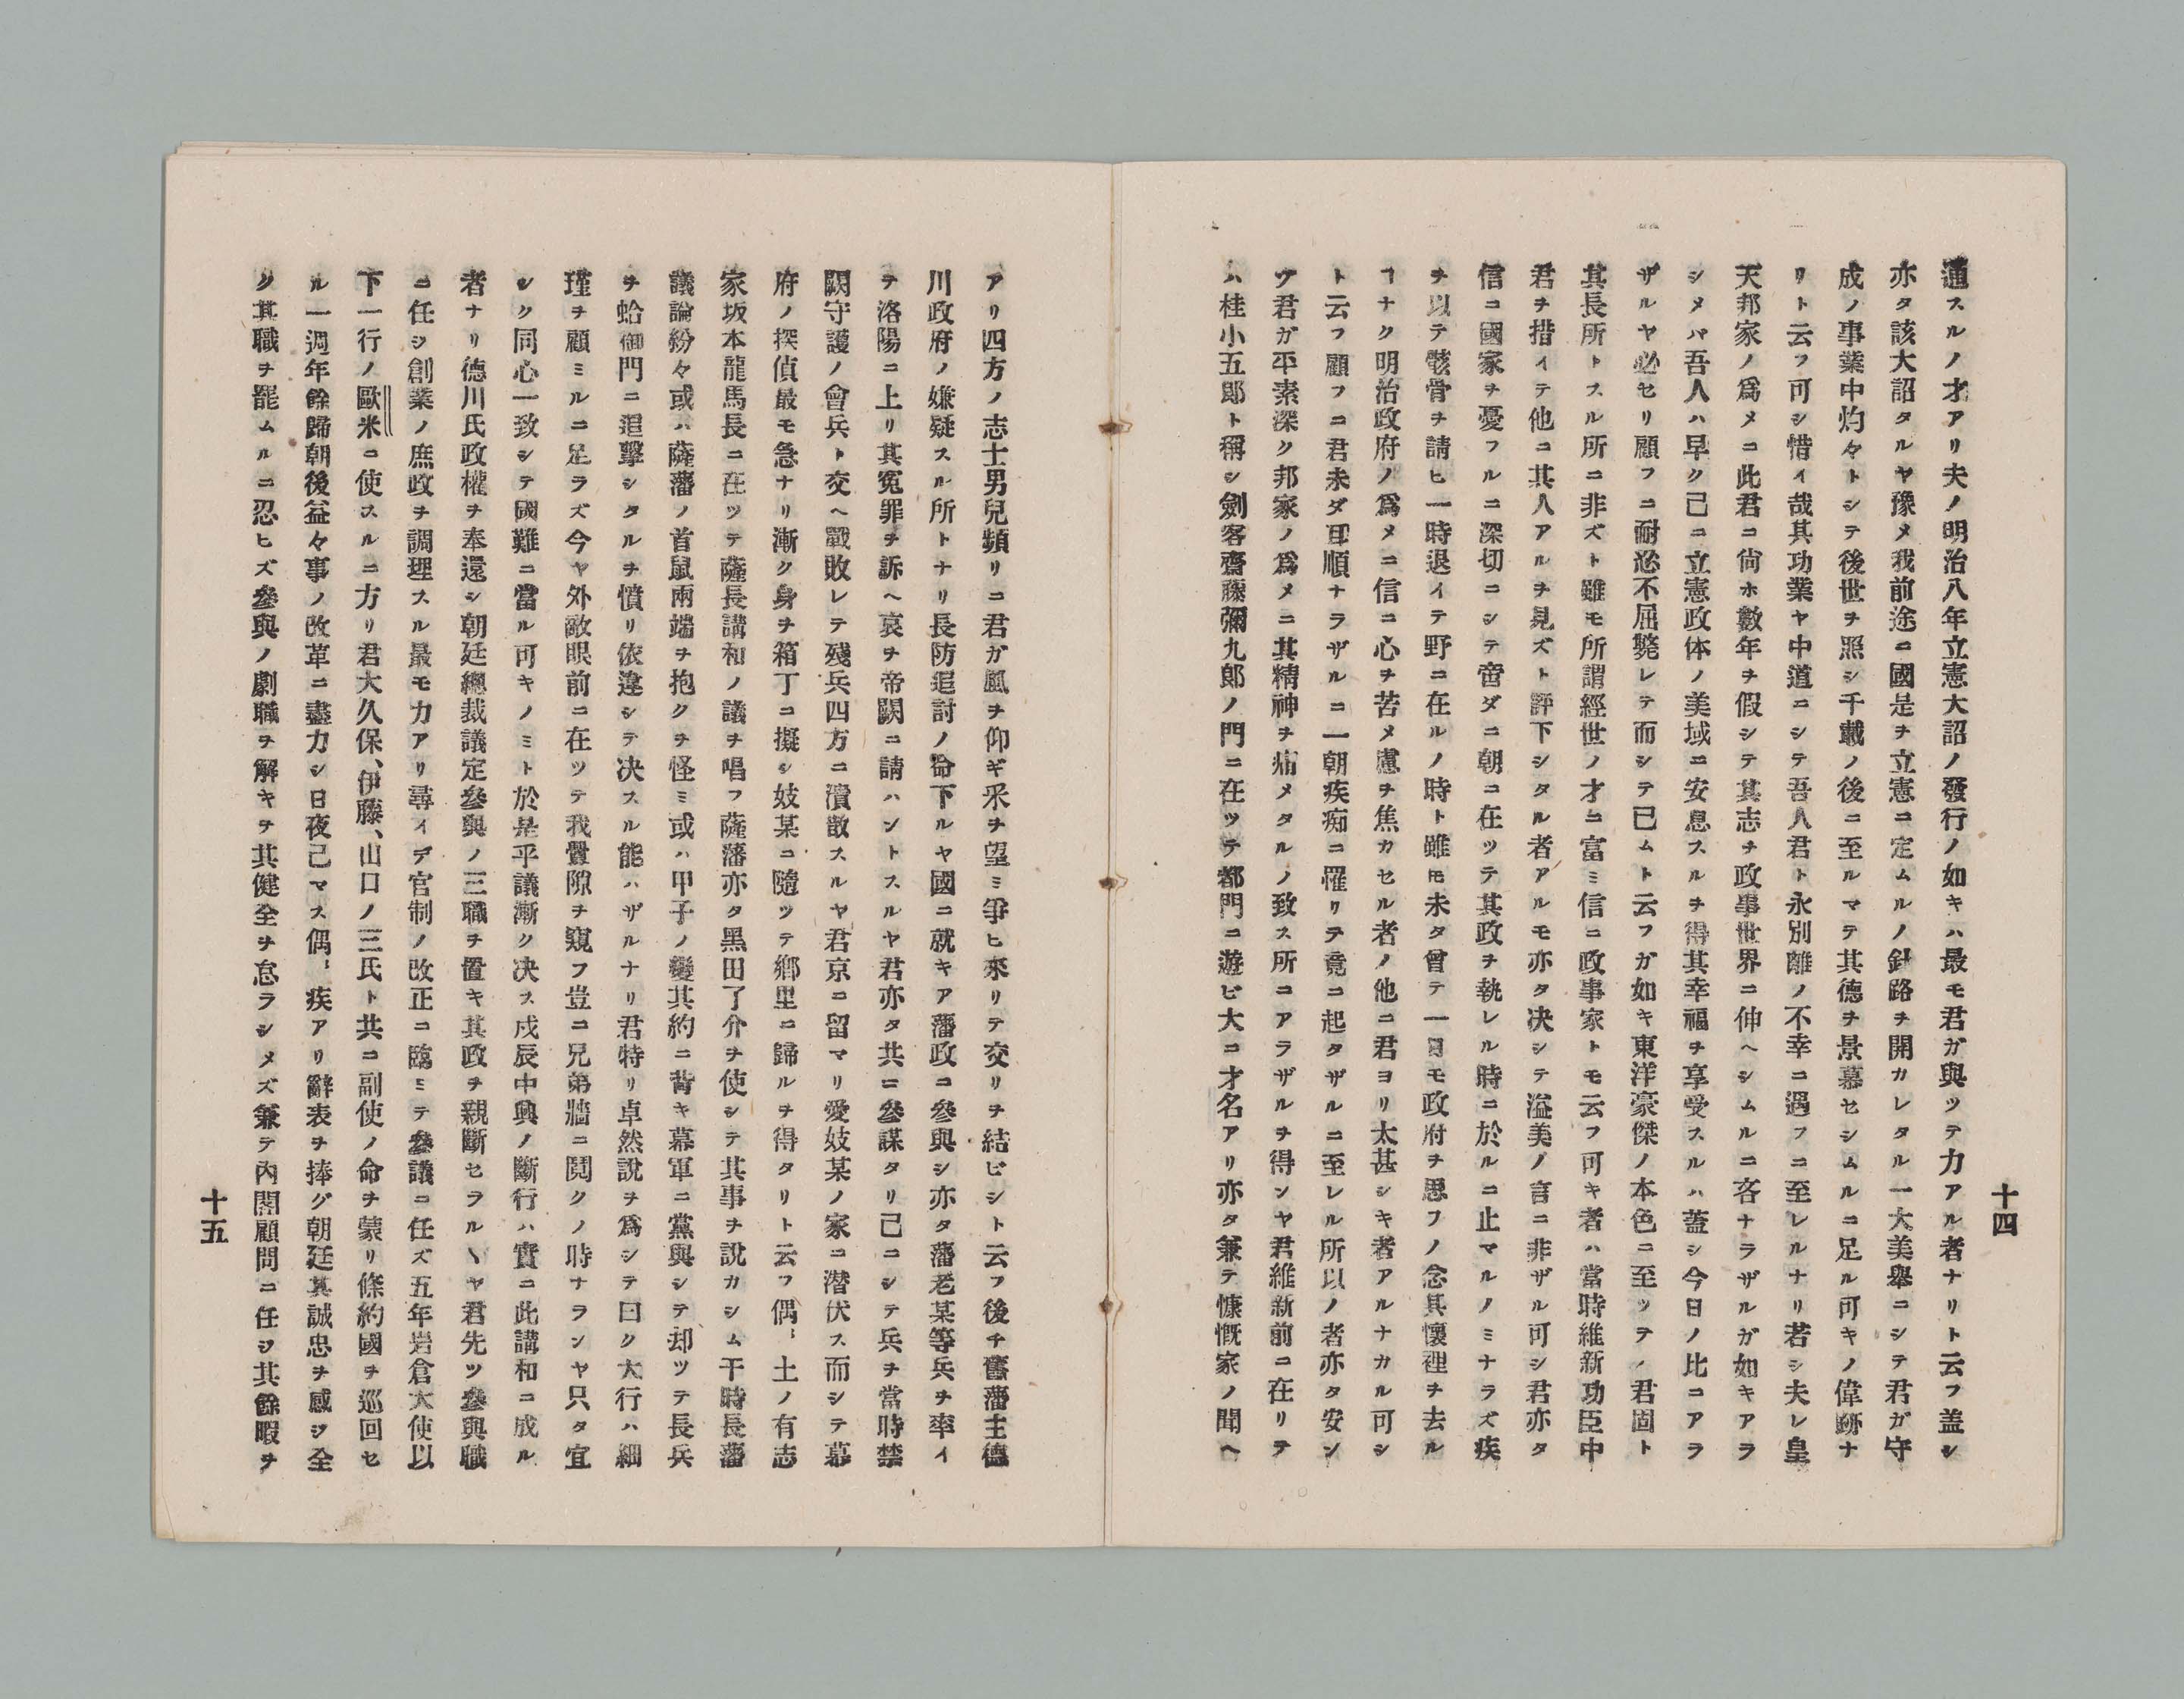 十四
通スルノ才アリ夫ノ明治八年立憲大詔ノ發行ノ如キハ最モ君ガ與ツテ力アル者ナリト云フ盖シ
亦タ該大詔タルヤ豫メ我前途ニ國是ヲ立憲ニ定ムルノ針路ヲ開カレタル一大美擧ニシテ君ガ守
成ノ事業中灼々トシテ後世ヲ照シ千載ノ後ニ至ルマテ其德ヲ景慕セシムルニ足ル可キノ偉跡ナ
リト云フ可シ惜イ哉其功業ヤ中道ニシテ吾人君ト永別離ノ不幸ニ遇フニ至レルナリ若シ夫レ皇
天邦家ノ爲メニ此君ニ尙ホ數年ヲ假シテ其志ヲ政事世界ニ伸ヘシムルニ吝ナラザルガ如キアラ
シメバ吾人ハ早ク己ニ立憲政体ノ美域ニ安息スルヲ得其幸福ヲ享受スルハ蓋シ今日ノ比ニアラ
ザルヤ必セリ顧フニ耐忍不屈斃レテ而シテ已ムト云フガ如キ東洋豪傑ノ本色ニ至ツテハ君固ト
其長所トスル所ニ非ズト雖モ所謂經世ノ才ニ富ミ信ニ政事家トモ云フ可キ者ハ當時維新功臣中
君ヲ措イテ他ニ其人アルヲ見ズト評下シタル者アルモ亦タ决シテ溢美ノ言ニ非ザル可シ君亦タ
信ニ國家ヲ憂フルニ深切ニシテ啻ダニ朝ニ在ツテ其政ヲ執レル時ニ於ルニ止マルノミナラズ疾
ヲ以テ骸骨ヲ請ヒ一時退イテ野ニ在ルノ時ト雖モ未タ曾テ一日モ政府ヲ思フノ念其懷裡ヲ去ル
ヿナク明治政府ノ爲メニ信ニ心ヲ苦メ慮ヲ焦カセル者ノ他ニ君ヨリ太甚シキ者アルナカル可シ
ト云フ顧フニ君未ダ耳順ナラザルニ一朝疾痴ニ罹リテ竟ニ起タザルニ至レル所以ノ者亦タ安ン
ゾ君ガ平素深ク邦家ノ爲メニ其精神ヲ痛メタルノ致ス所ニアラザルヲ得ンヤ君維新前ニ在リテ
ハ桂小五郎ト稱シ劍客齋藤彌九郎ノ門ニ在ツテ都門ニ遊ビ大ニ才名アリ亦タ兼テ慷慨家ノ聞ヘ
アリ四方ノ志士男兒頻リニ君ガ風ヲ仰ギ采ヲ望ミ爭ヒ來リテ交リヲ結ビシト云フ後チ舊藩主德
川政府ノ嫌疑スル所トナリ長防追討ノ命下ルヤ國ニ就キア藩政ニ參與シ亦タ藩老某等兵ヲ率イ
テ洛陽ニ上リ其寃罪ヲ訴ヘ哀ヲ帝闕ニ請ハントスルヤ君亦タ共ニ參謀タリ己ニシテ兵ヲ當時禁
闕守護ノ會兵ト交ヘ戰敗レテ殘兵四方ニ潰散スルヤ君京ニ留マリ愛妓某ノ家ニ潜伏ス而シテ幕
府ノ探偵最モ急ナリ漸ク身ヲ箱丁ニ擬シ妓某ニ隨ツテ鄕里ニ歸ルヲ得タリト云フ偶〻土ノ有志
家坂本龍馬長ニ在ツテ薩長講和ノ議ヲ唱フ薩藩亦タ黑田了介ヲ使シテ其事ヲ說カシム干時長藩
議論紛々或ハ薩藩ノ首鼠兩端ヲ抱クヲ怪ミ或ハ甲子ノ變其約ニ背キ幕軍ニ黨與シテ却ツテ長兵
ヲ蛤御門ニ追擊シタルヲ憤リ依違シテ决スル能ハザルナリ君特リ卓然說ヲ爲シテ曰ク大行ハ細
瑾ヲ顧ミルニ足ラズ今ヤ外敵眼前ニ在ツテ我釁隙ヲ窺フ豈ニ兄弟牆ニ鬩クノ時ナランヤ只タ宜
シク同心一致シテ國難ニ當ル可キノミト於是乎議漸ク决ス戍辰中興ノ斷行ハ實ニ此講和ニ成ル
者ナリ德川氏政權ヲ奉還シ朝廷總裁議定參與ノ三職ヲ置キ其政ヲ親斷セラルヽヤ君先ツ參與職
ニ任シ創業ノ庶政ヲ調理スル最モ力アリ尋イデ官制ノ改正ニ臨ミテ參議ニ任ズ五年岩倉大使以
下一行ノ歐米ニ使スルニ方リ君大久保、伊藤、山口ノ三氏ト共ニ副使ノ命ヲ蒙リ條約國ヲ巡回セ
ル一週年餘歸朝後益々事ノ改革ニ盡力シ日夜己マス偶〻疾アリ辭表ヲ捧グ朝廷其誠忠ヲ感ジ全
ク其職ヲ罷ムルニ忍ヒズ參與ノ劇職ヲ解キヲ其健全ヲ怠ラシメズ兼テ內閣顧問ニ任ジ其餘暇ヲ
十五